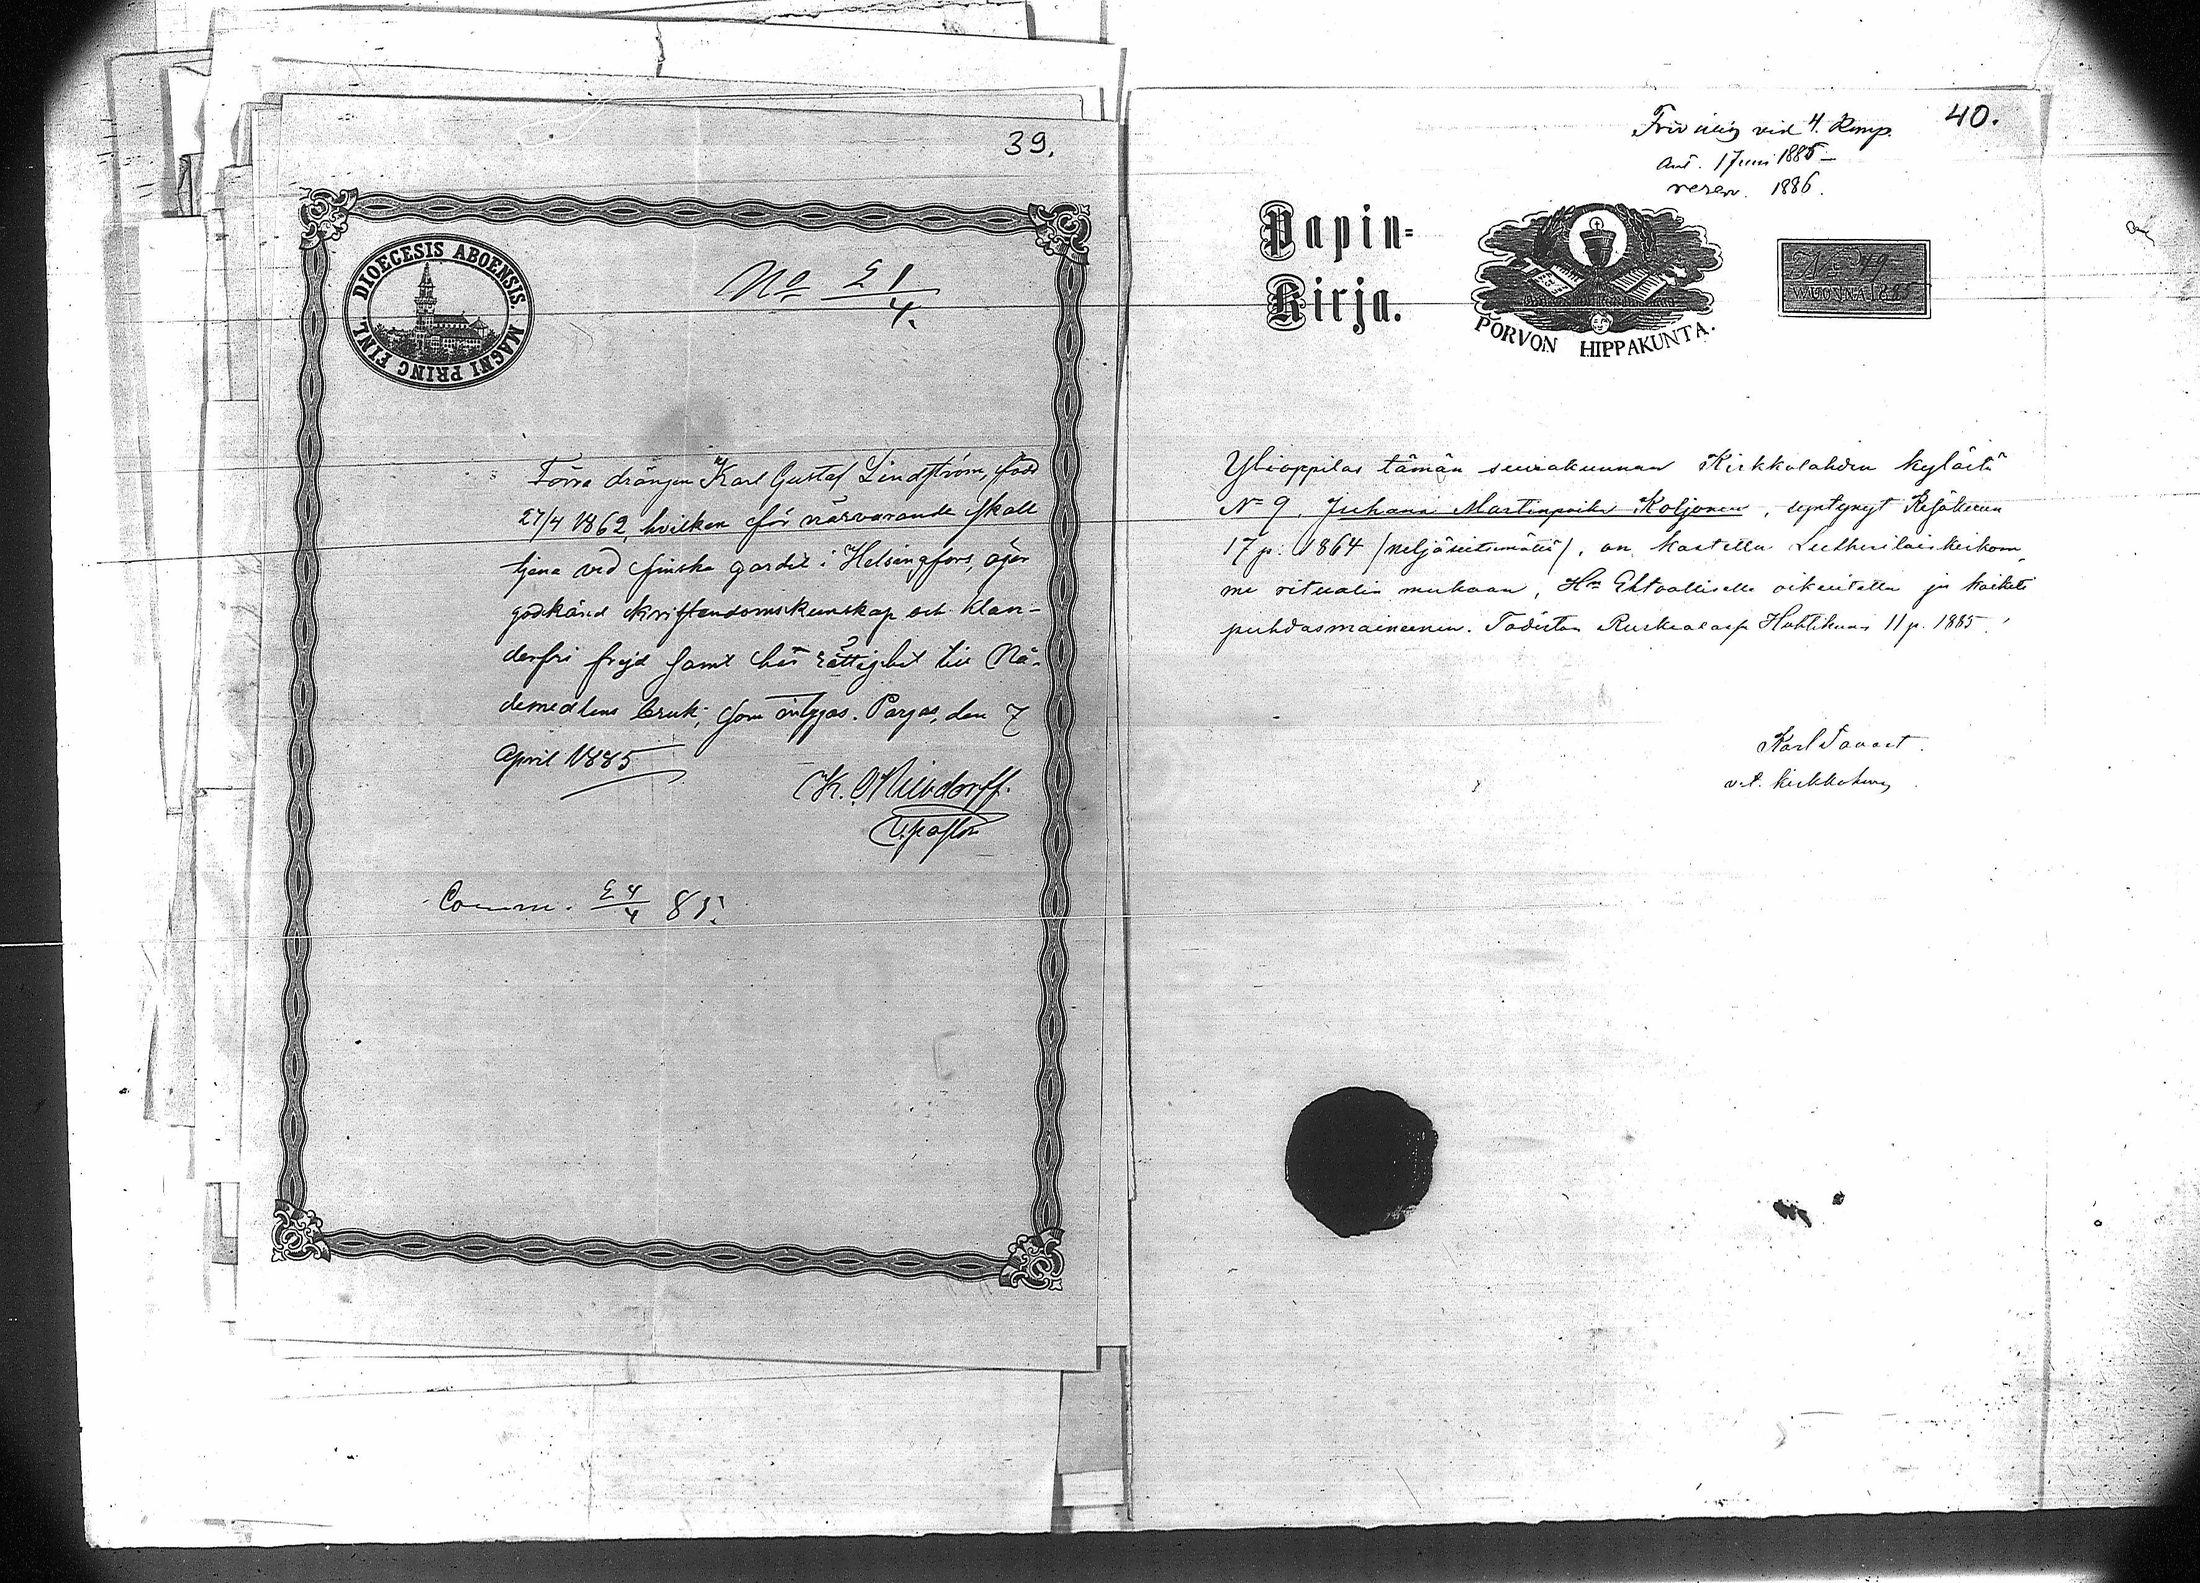 39.
DIOECESIS ABOENSIS. MAGNI PRINC FINL.
No 21/4.
Förra drängen Karl Gustaf Lindström, född
27/4 1862, hvilken för närvarande skall
tjena vid finska gardet i Helsingfors, eger
godkänd kristendomskunskap och klan-
derfri frejd samt har rättighet till Nå-
demedlens bruk; som intygas. Pargas, den 7
April 1885
K.
v. pastor
Comm. 24/4 85.
40.
Frivillig vid 4. Komp.
Ant. 1 Juni 1885 –
reserv. 1886.
Papin=
Kirja.
PORVON HIPPAKUNTA.
No 49
WUONNA 1885
Ylioppilas tämän seurakunnan Kirkkolahden kylästä
No 9, Juhana Martinpoika Koljonen, syntynyt Kesäkuun
17 p. 1864 (neljäseitsemättä), on kastettu Lutherilaiskirkom-
me ritualin mukaan, Hn Ehtoolliselle oikeutettu ja kaikesti
puhdasmaineinen. Todistaa Ruskealassa Huhtikuun 11 p. 1885.
Karl Tavast.
v.t. kirkkoherra